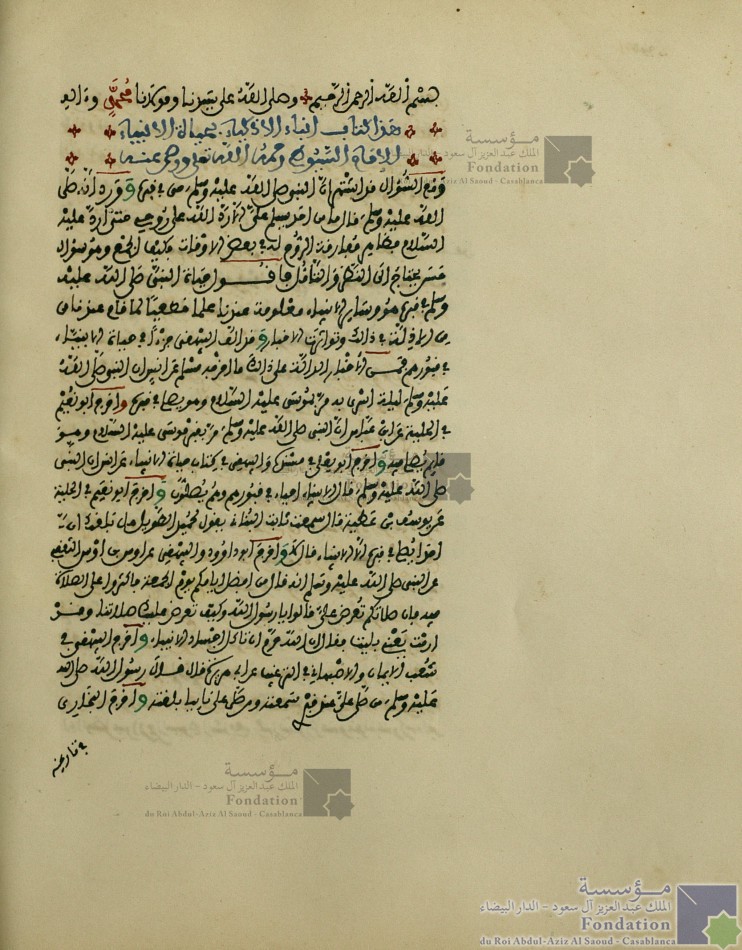 بسم الله الرحمن الرحيم وصلى الله على سيدنا ومولانا محمد وءاله
هذا كتاب انباء الاذكياء بحياة الانبياء
الامام السيوطي رحمه الله تعلى ورضي عنه
وقع السؤال قد اشتهر ان النبي صلى الله عليه وسلم حي في قبره وورد انه صلى
الله عليه وسلم قال ما من احد يسلم علي الا رد الله علي روحي حتى ارد عليه
السلام فظاهره مفارقة الروح له في بعض الاوقات فكيف الجمع وهو سؤال
حسن يحتاج الى النظر والتأمل فاقول حياة النبي صلى الله عليه
وسلم في قبره هو وسائر الانبياء معلومة عندنا علما قطعيا لما قام عندنا
من الادلة في ذلك وتواترت الاخبار وقد الف البيهقي جزءا في حياة الانبياء
في قبورهم فمن الاخبار الدالة على ذلك ما اخرجه مسلم عن انس ان النبي صلى الله
عليه وسلم ليلة اسري به مر بموسى عليه السلام وهو يصلي في قبره واخرج ابو نعيم
في الحلية عن ابن عباس ان النبي صلى الله عليه وسلم مر بقبر موسى عليه السلام وهو
قايم يصلي فيه واخرج ابو يعلى في مسنده والبيهقي في كتاب حياة الانبياء عن انس ان النبي
صلى الله عليه وسلم قال الانبياء احياء في قبورهم وهم يصلون واخرج ابو نعيم في الحلية
عن يوسف بن عطية قال سمعت ثابت البناني يقول لحميد الطويل هل بلغك ان
احدا يصلي في قبره الا الانبياء قال لا واخرج ابو داوود والبيهقي عن اوس بن اوس الثقفي
عن النبي صلى الله عليه وسلم انه قال من افضل ايامكم يوم الجمعة فاكثروا علي الصلاة
فيه فان صلاتكم تعرض علي قالوا يا رسول الله وكيف تعرض عليك صلاتنا وقد
ارمت يعني بليت فقال ان الله حرم ان تاكل اجساد الانبياء واخرج البيهقي في
شعب الايمان والاصبهاني في الترغيب عن ابي هريرة قال قال رسول الله صلى الله
عليه وسلم من صلى علي عند قبري سمعته ومن صلى علي نايبا بلغته واخرج البخاري
في تاريخه
مؤسسة
الملك عبد العزيز آل سعود - الدار البيضاء
Fondation
du Roi Abdul-Aziz Al Saoud - Casablanca
مؤسسة
الملك عبد العزيز آل سعود - الدار البيضاء
Fondation
du Roi Abdul-Aziz Al Saoud - Casablanca